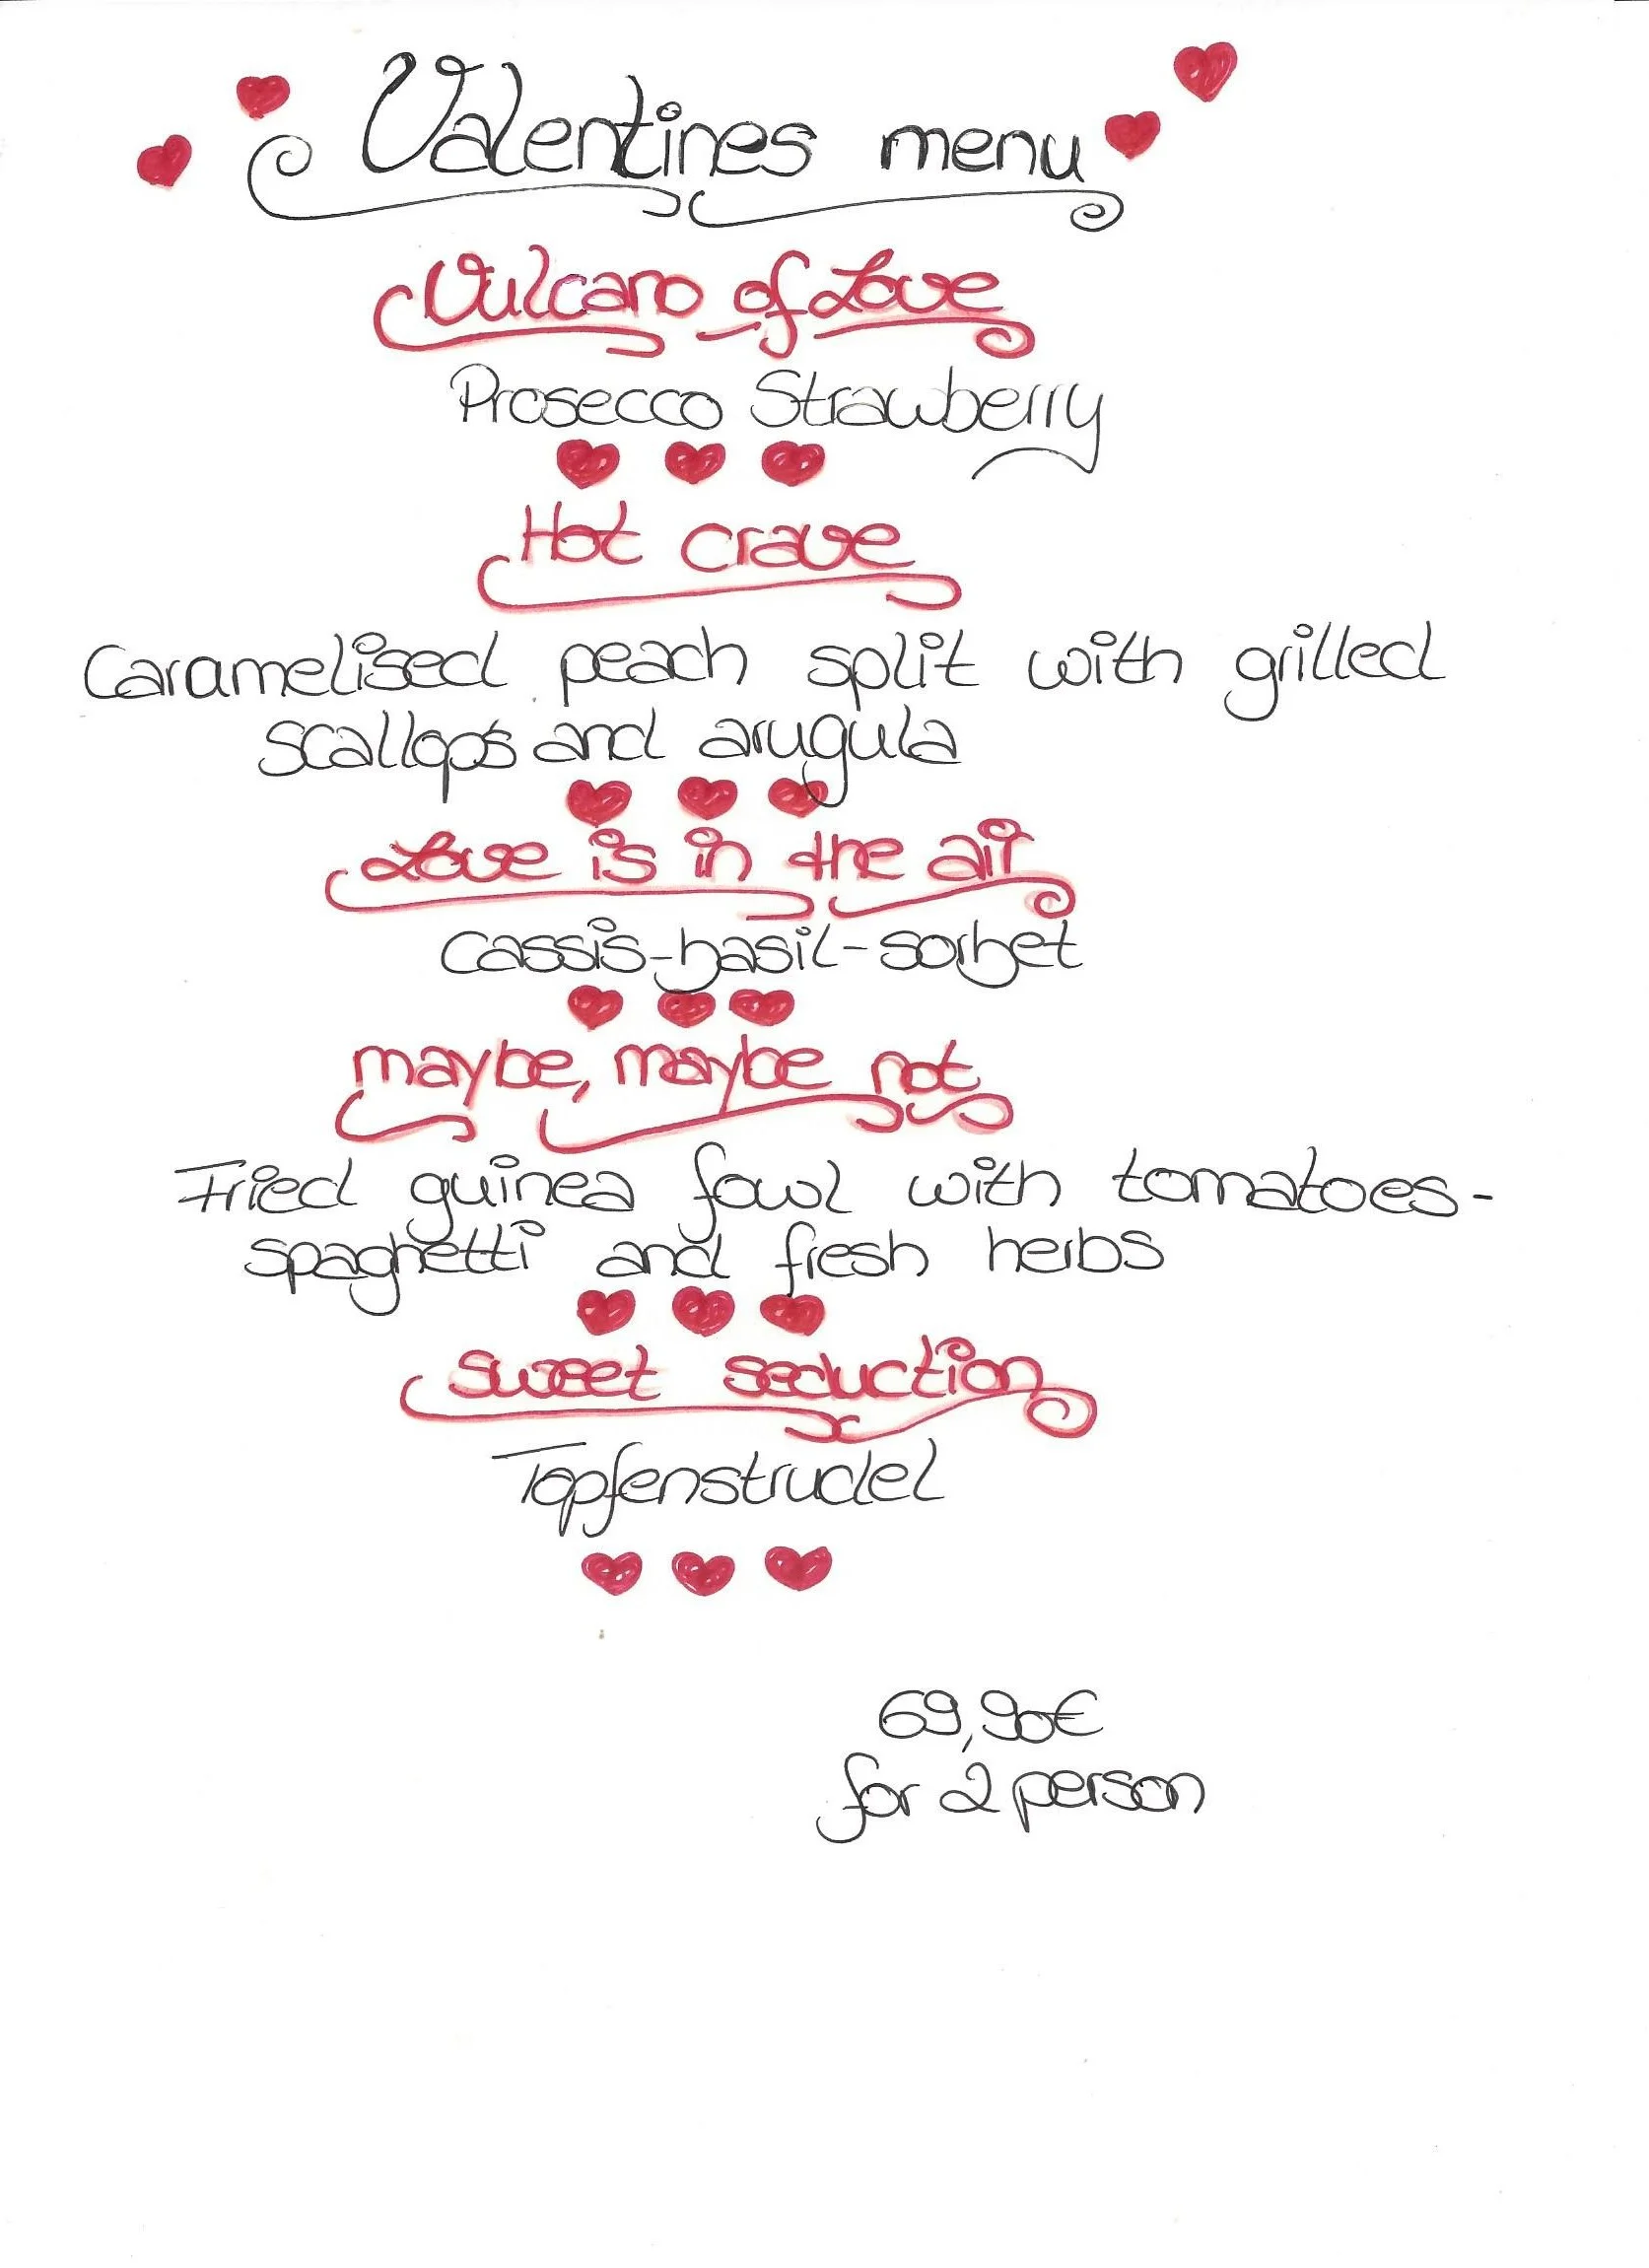 Valentines menu
Vulcano of Love
Prosecco Strawberry
Hot crave
Caramelised peach split with grilled
scallops and arugula
Love is in the air
Cassis-basil-sorbet
maybe, maybe not
Fried guinea fowl with tomatoes-
spaghetti and fresh herbs
Sweet seduction
Topfenstrudel
69,90€
for 2 person